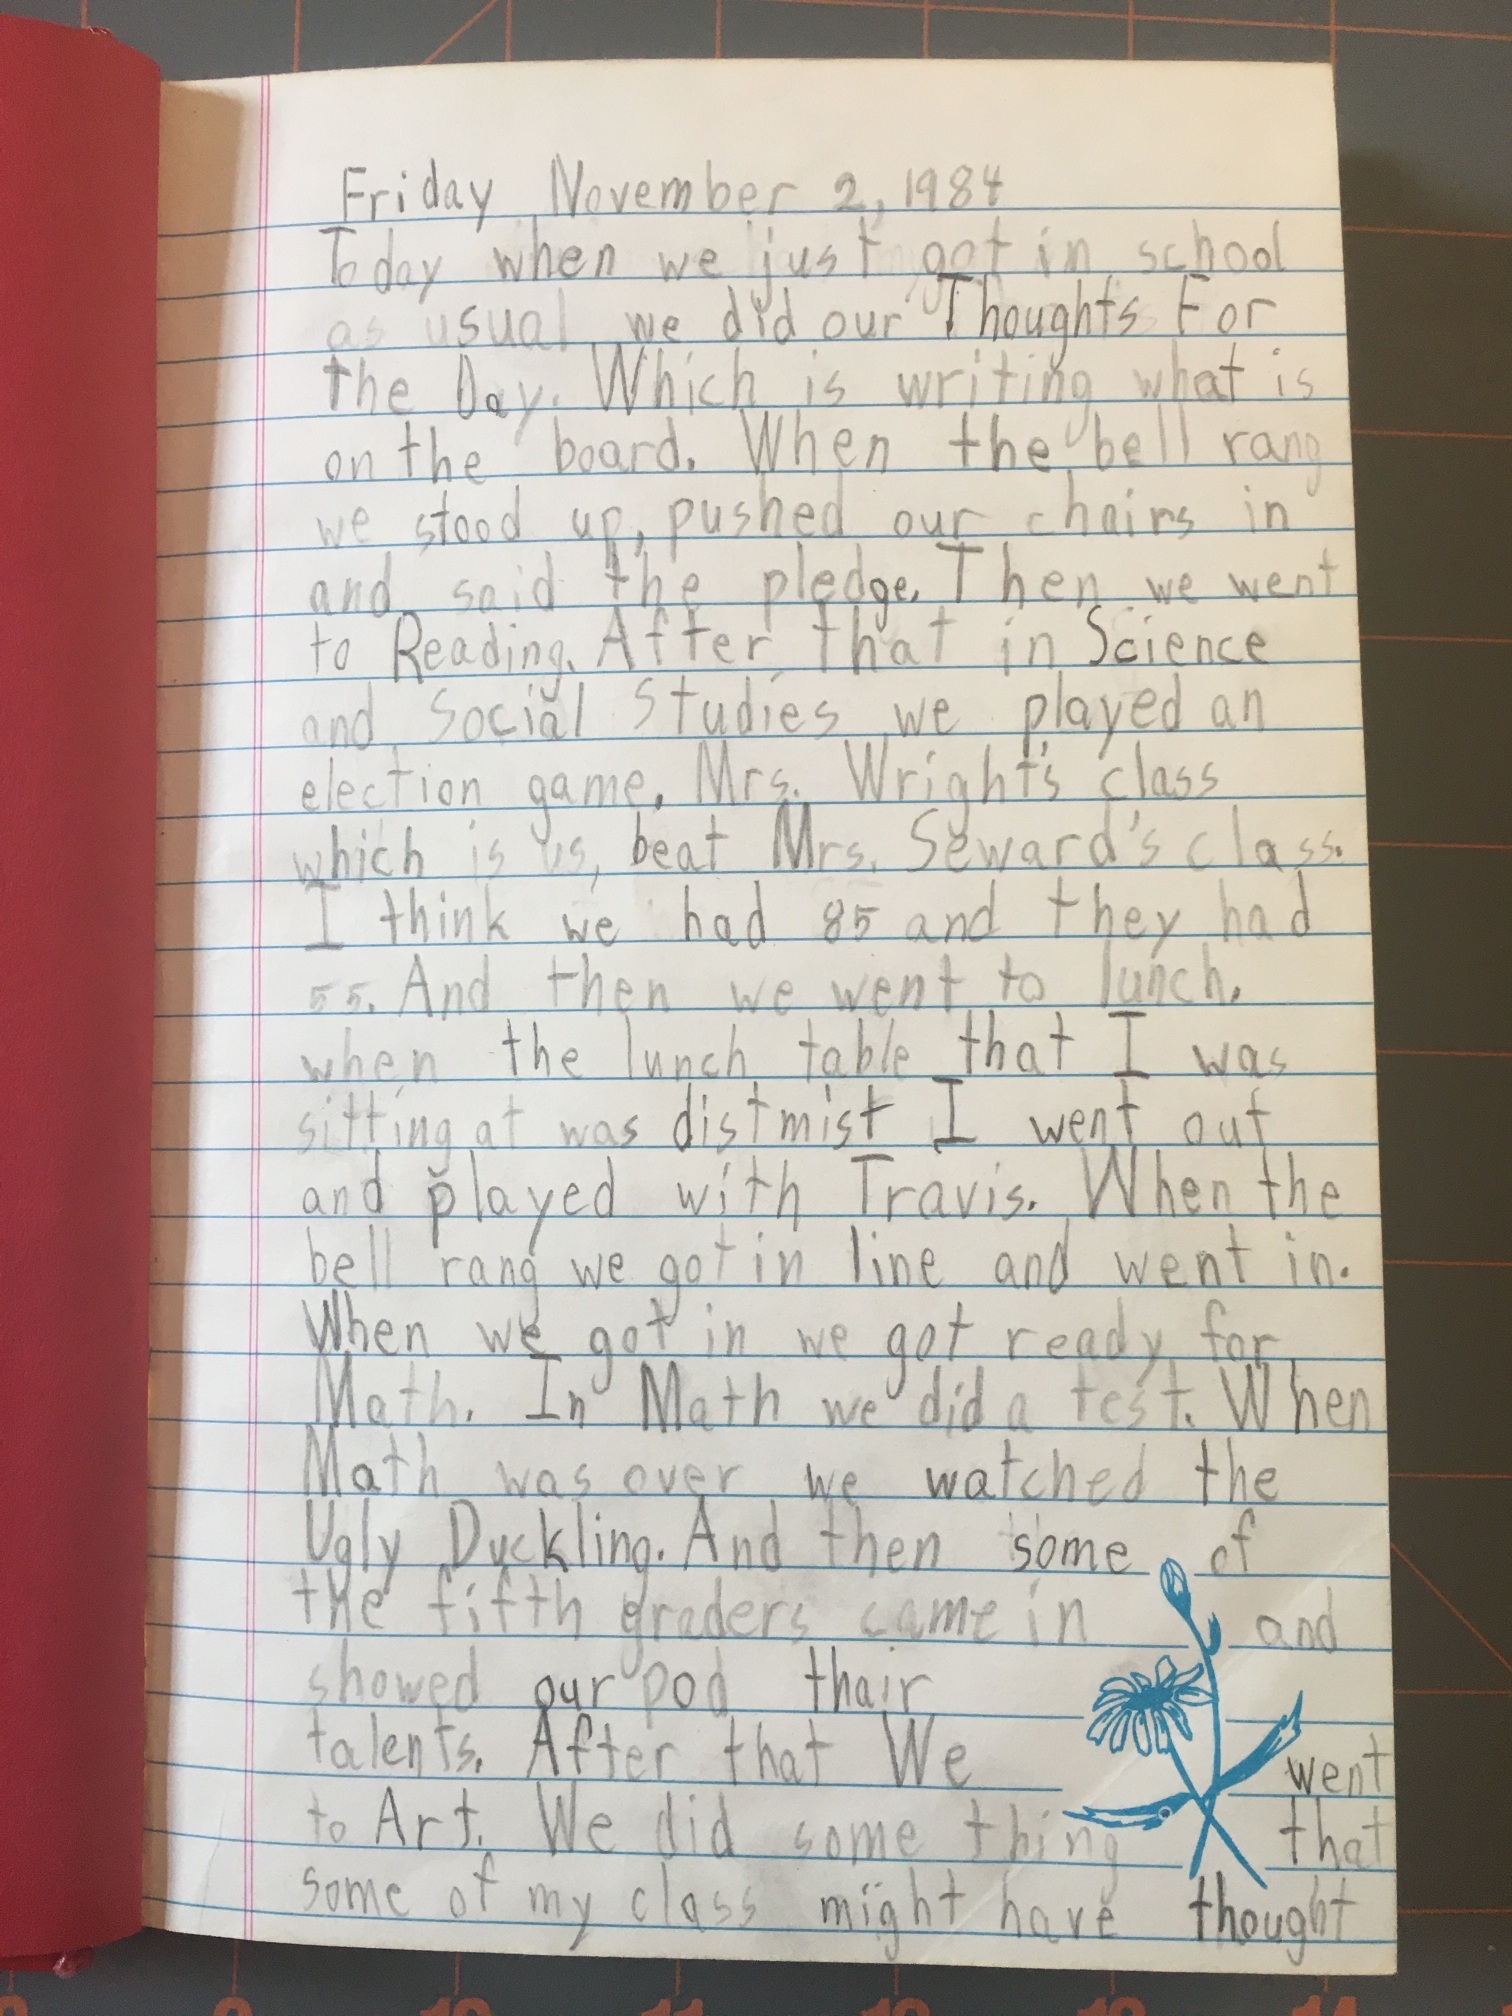 Friday November 2, 1984
Today when we just got in school
as usual we did our Thoughts For
the Day. Which is writing what is
on the board. When the bell rang
we stood up, pushed our chairs in
and said the pledge. Then we went
to Reading. After that in Science
and Social Studies we played an
election game. Mrs. Wright's class
which is us, beat Mrs. Seward's class.
I think we had 85 and they had
55. And then we went to lunch.
when the lunch table that I was
sitting at was distmist I went out
and played with Travis. When the
bell rang we got in line and went in.
When we got in we got ready for
Math. In Math we did a test. When
Math was over we watched the
Ugly Duckling. And then some of
the fifth graders came in and
showed our pod thair
talents. After that We went
to Art. We did some thing that
some of my class might have thought
8 9 10 11 12 13 14